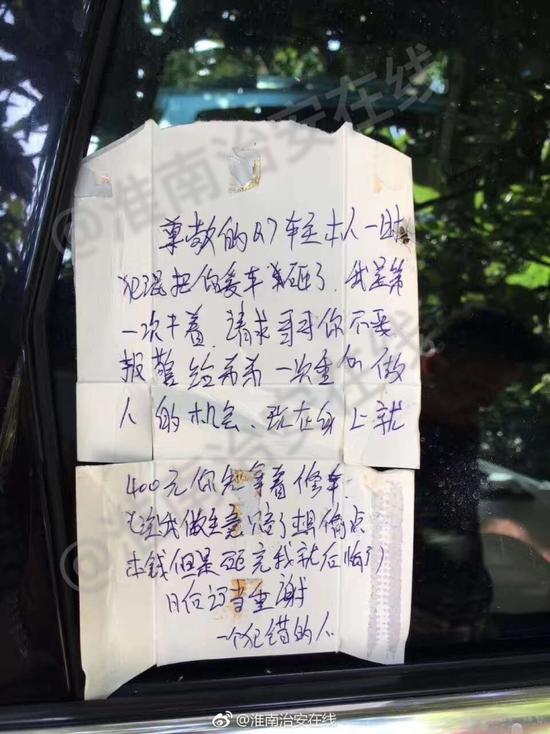 尊敬的Q7车主本人一时
犯混把你爱车车砸了.我是第
一次干着.请求哥哥你不要
报警给弟弟一次重的做
人的机会、现在身上就
400元你先拿着修车.
(注我做生意赔了想偷点
本钱但是砸完我就后悔了)
日后定当重谢
一个犯错的人.
@淮南治安在线
@淮南治安在线
@淮南治安在线